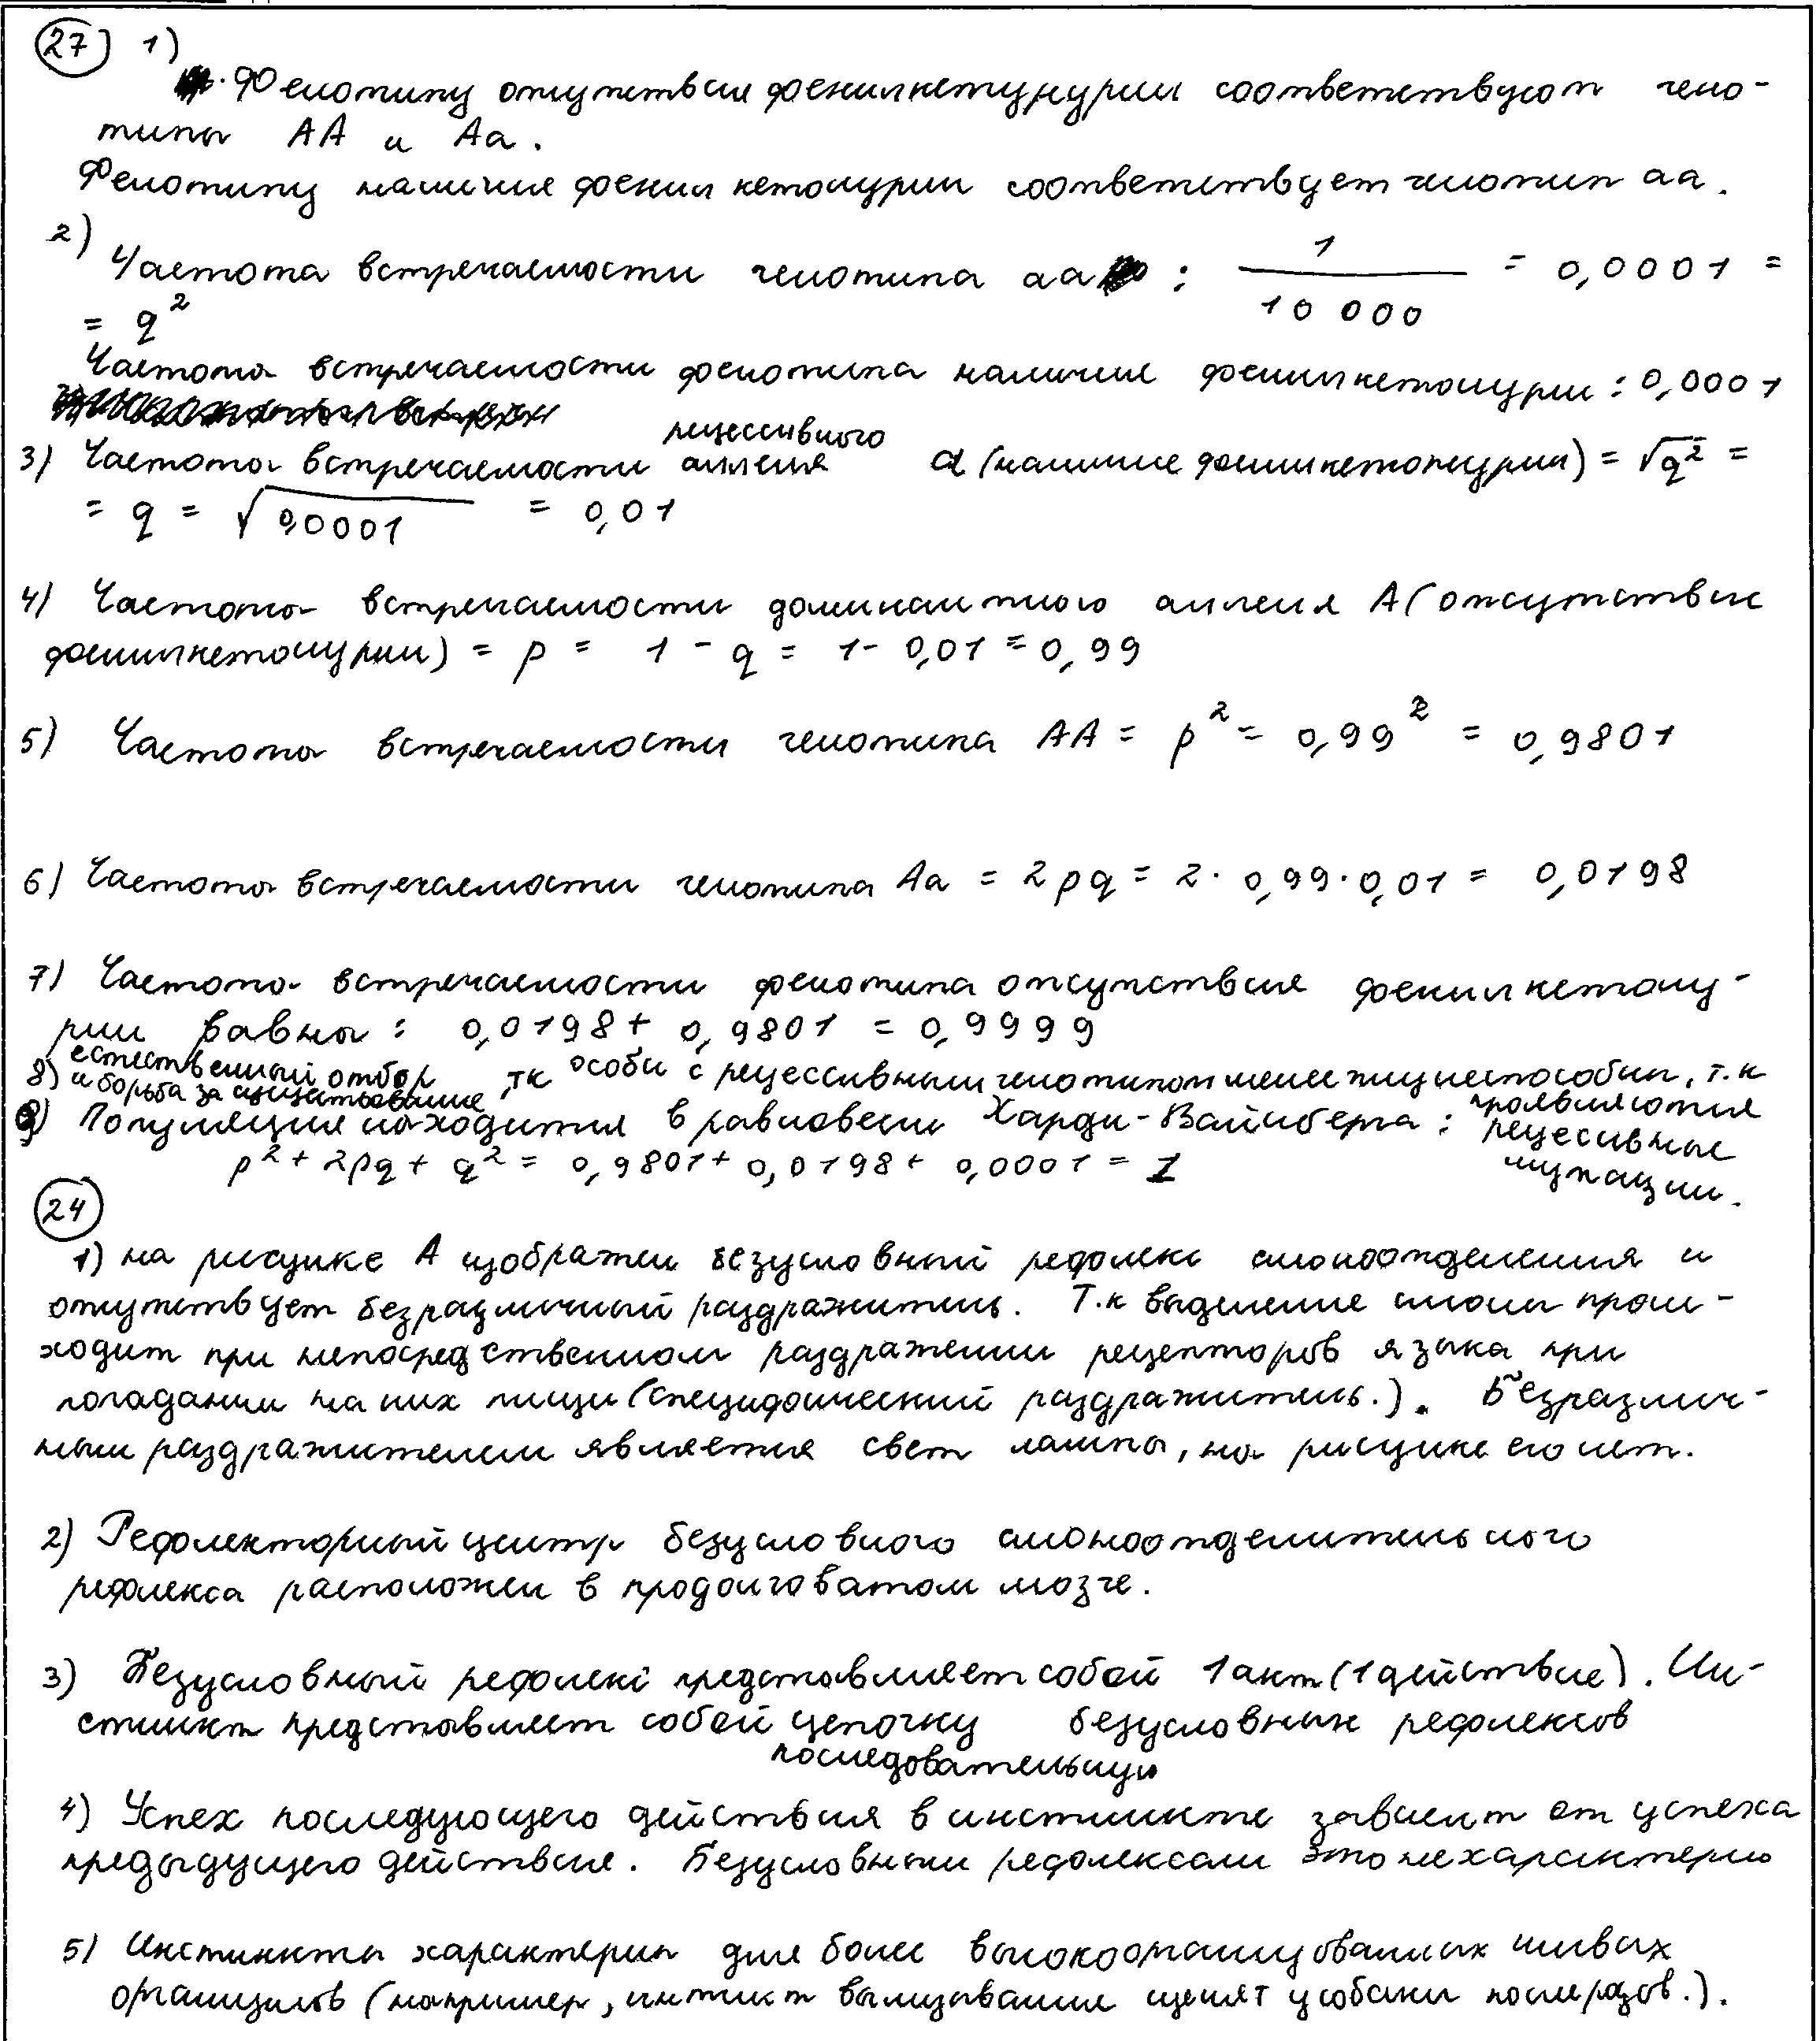 27) 1)
Фенотипу отсутствие фенилкетунурии соответствуют гено-
типы АА и Аа.
Фенотипу наличие фенилкетонурии соответствует генотип аа.
2)
Частота встречаемости генотипа аа : 1/10 000 = 0,0001 =
= q²
Частота встречаемости фенотипа наличие фенилкетонурии : 0,0001
3) Частота встречаемости рецессивного аллеля а (наличие фенилкетонурии) = √q² =
= q = √0,0001 = 0,01
4) Частота встречаемости доминантного аллеля А (отсутствие
фенилкетонурии) = p = 1 - q = 1 - 0,01 = 0,99
5) Частота встречаемости генотипа АА = p² = 0,99² = 0,9801
6) Частота встречаемости генотипа Аа = 2pq = 2 · 0,99 · 0,01 = 0,0198
7) Частота встречаемости фенотипа отсутствие фенилкетону-
рии равны : 0,0198 + 0,9801 = 0,9999
8) естественный отбор и борьба за существование, тк особи с рецессивным генотипом менее жизнеспособны, т.к проявляются рецессивные мутации.
9) Популяция находится в равновесии Харди-Вайнберга :
p² + 2pq + q² = 0,9801 + 0,0198 + 0,0001 = 1
24
1) на рисунке А изображен безусловный рефлекс слюноотделения и
отсутствует безразличный раздражитель. Т.к выделение слюны проис-
ходит при непосредственном раздражении рецепторов языка при
попадании на них пищи (специфический раздражитель.). Безразлич-
ным раздражителем является свет лампы, на рисунке его нет.
2) Рефлекторный центр безусловного слюноотделительного
рефлекса расположен в продолговатом мозге.
3) Безусловный рефлекс представляет собой 1 акт (1 действие). Ин-
стинкт представляет собой цепочку безусловных рефлексов
последовательную
4) Успех последующего действия в инстинкте зависит от успеха
предыдущего действие. Безусловным рефлексам это не характерно
5) Инстинкты характерны для более высокоорганизованных живых
организмов (например, инстинкт вылизывание щенят у собаки после родов.).